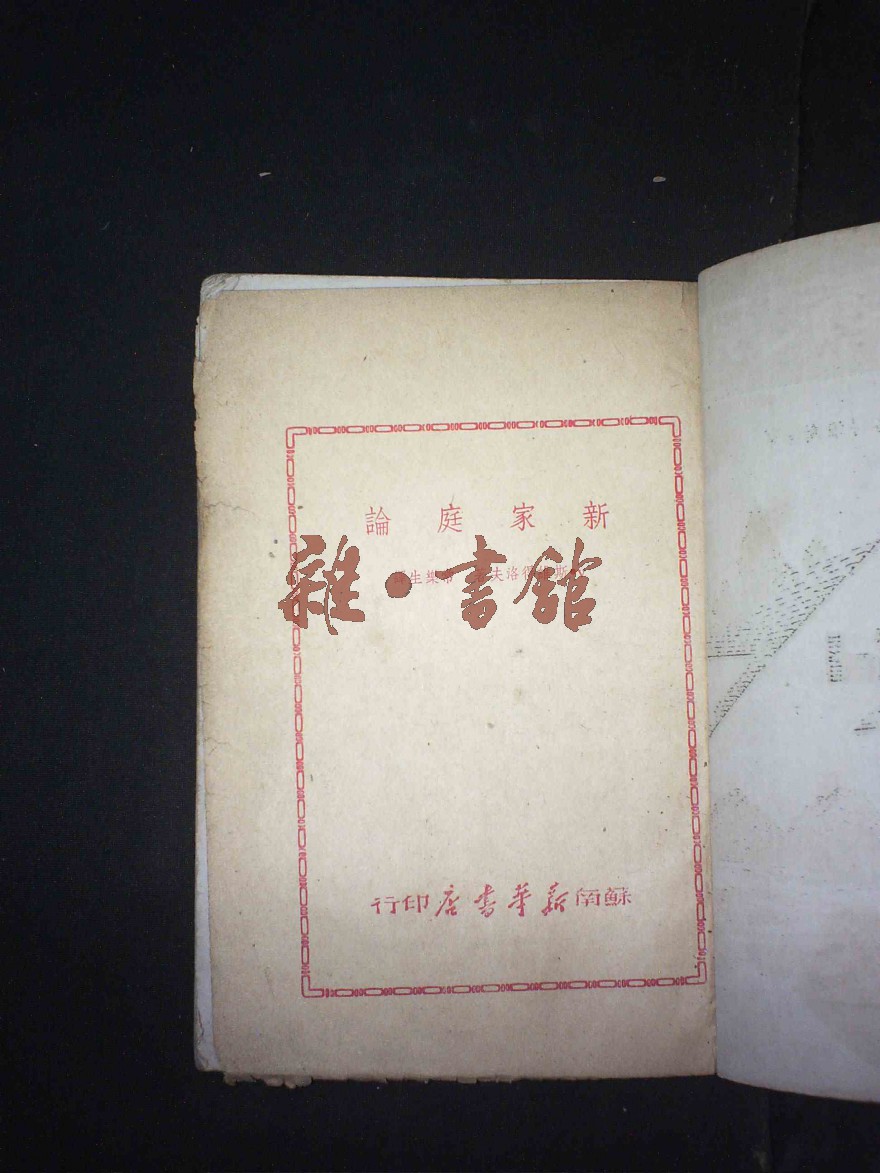 新家庭論
斯 得洛夫 樂生
雜·書館
蘇南新華書店印行